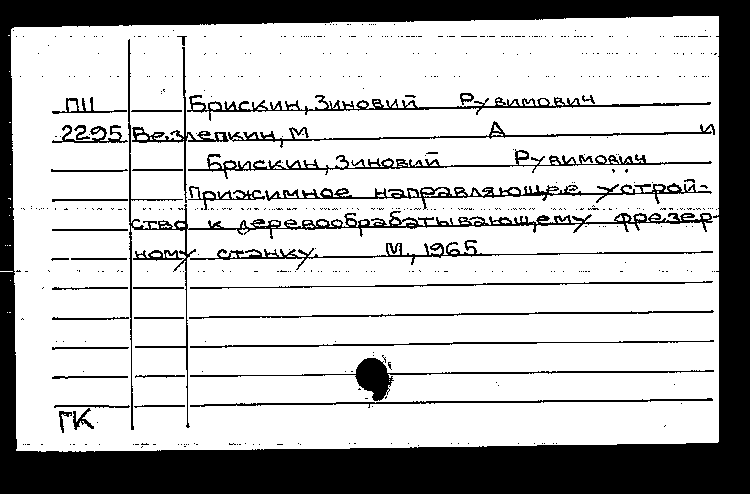 П11 Брискин, Зиновий Рувимович
2295 Безлепкин, М А и
Брискин, Зиновий Рувимович
Прижимное направляющее устрой-
ство к деревообрабатывающему фрезер-
ному станку. М., 1965
ГК